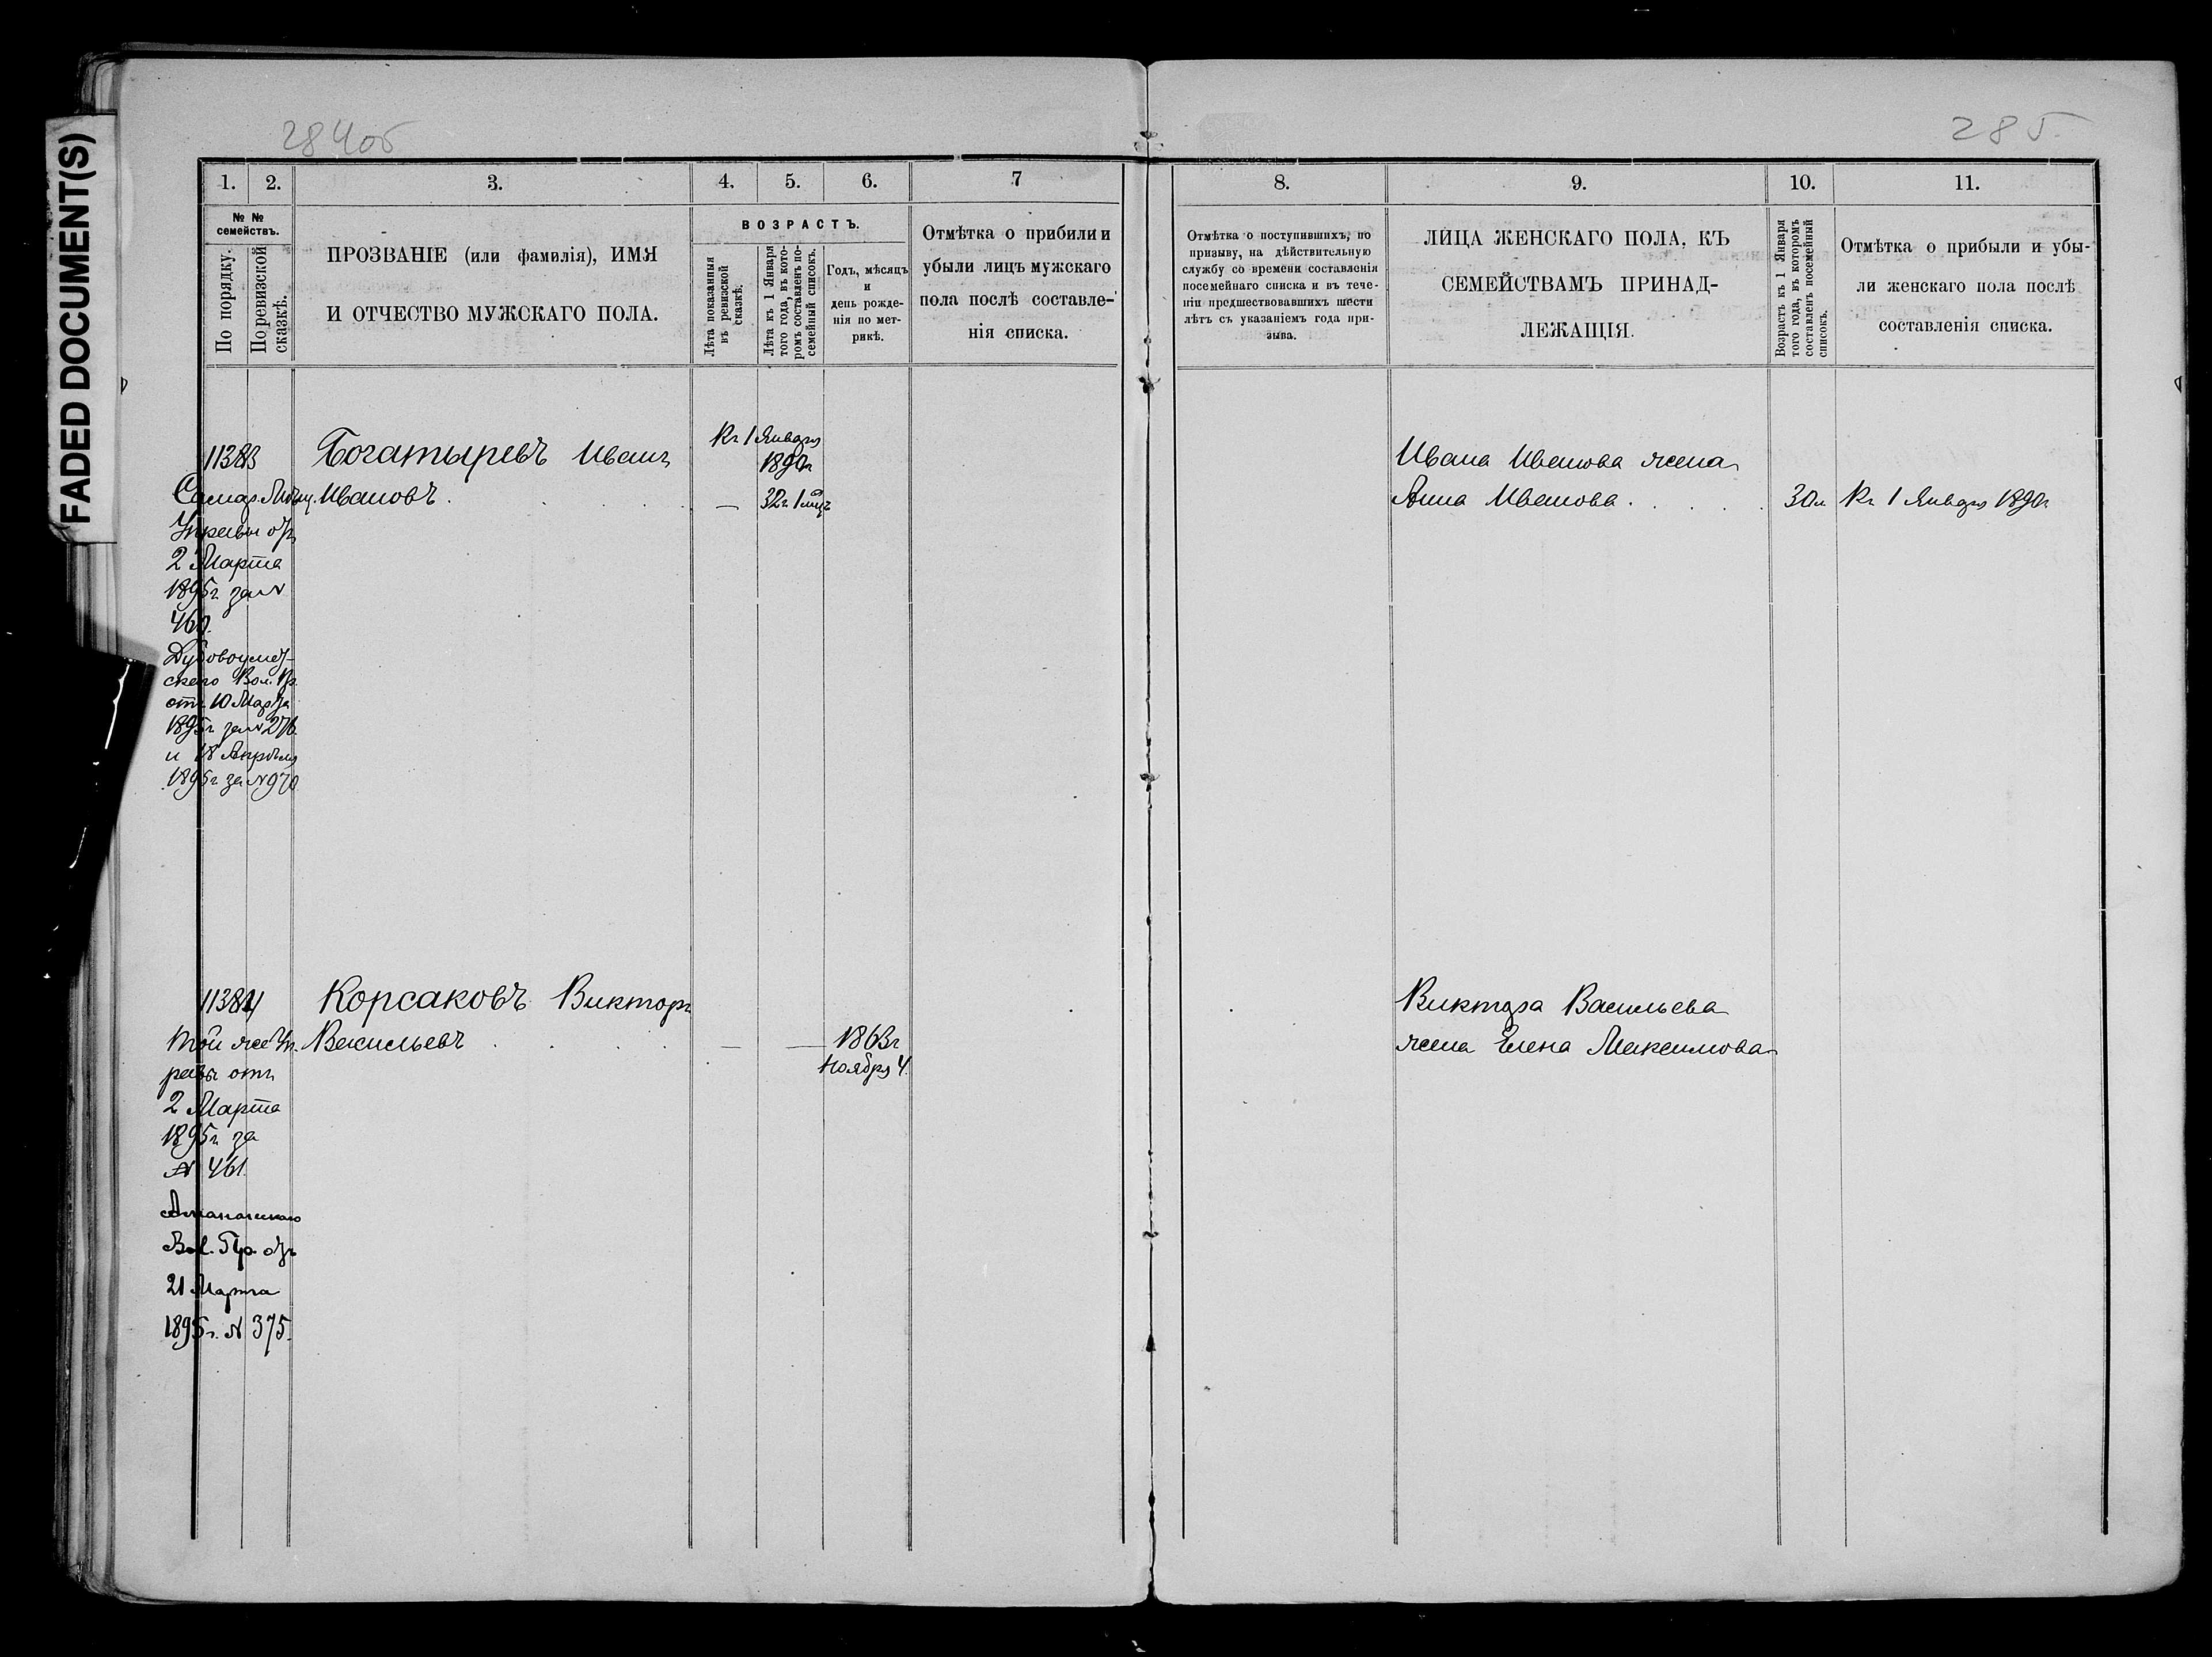 FADED DOCUMENT(S)
284об
285.
1. 2. 3. 4. 5. 6. 7
№ № семействъ.
По порядку.
По ревизской сказкѣ.
ПРОЗВАНІЕ (или фамилія), ИМЯ
И ОТЧЕСТВО МУЖСКАГО ПОЛА.
ВОЗРАСТЪ.
Лѣта показанныя
въ ревизской
сказкѣ.
Лѣта къ 1 Января
того года, въ кото-
ромъ составленъ по-
семейный списокъ.
Годъ, мѣсяцъ
и
день рожде-
нія по мет-
рикѣ.
Отмѣтка о прибили и
убыли лицъ мужскаго
пола послѣ составле-
нія списка.
11383 Богатыревъ Иванъ
Къ 1 Января
1890г
Самар. Мѣщ. Ивановъ. — 32г. 1 мцъ
Управы отъ
2 Марта
1895г. за №
460.
Дубовоумет-
скаго Вол. Пр.
отъ 10 Марта
1895г. за № 276
и 18 Апрѣля
1895г. за № 970
11384 Корсаковъ Викторъ
той же Уп. Васильевъ — — 1863г
равы отъ
Ноября 4.
2 Марта
1895г. за
№ 461.
Вол. Пр. отъ
21 Марта
1895г. № 375.
8. 9. 10. 11.
Отмѣтка о поступившихъ, по
призыву, на дѣйствительную
службу со времени составленія
посемейнаго списка и въ тече-
ніи предшествовавшихъ шести
лѣтъ съ указаніемъ года при-
зыва.
ЛИЦА ЖЕНСКАГО ПОЛА, КЪ
СЕМЕЙСТВАМЪ ПРИНАД-
ЛЕЖАЩІЯ.
Возрастъ къ 1 Января
того года, въ которомъ
составленъ посемейный
списокъ.
Отмѣтка о прибыли и убы-
ли женскаго пола послѣ
составленія списка.
Ивана Иванова жена
Анна Иванова. 30л. Къ 1 Января 1890г
Виктора Васильева
жена Елена Максимова